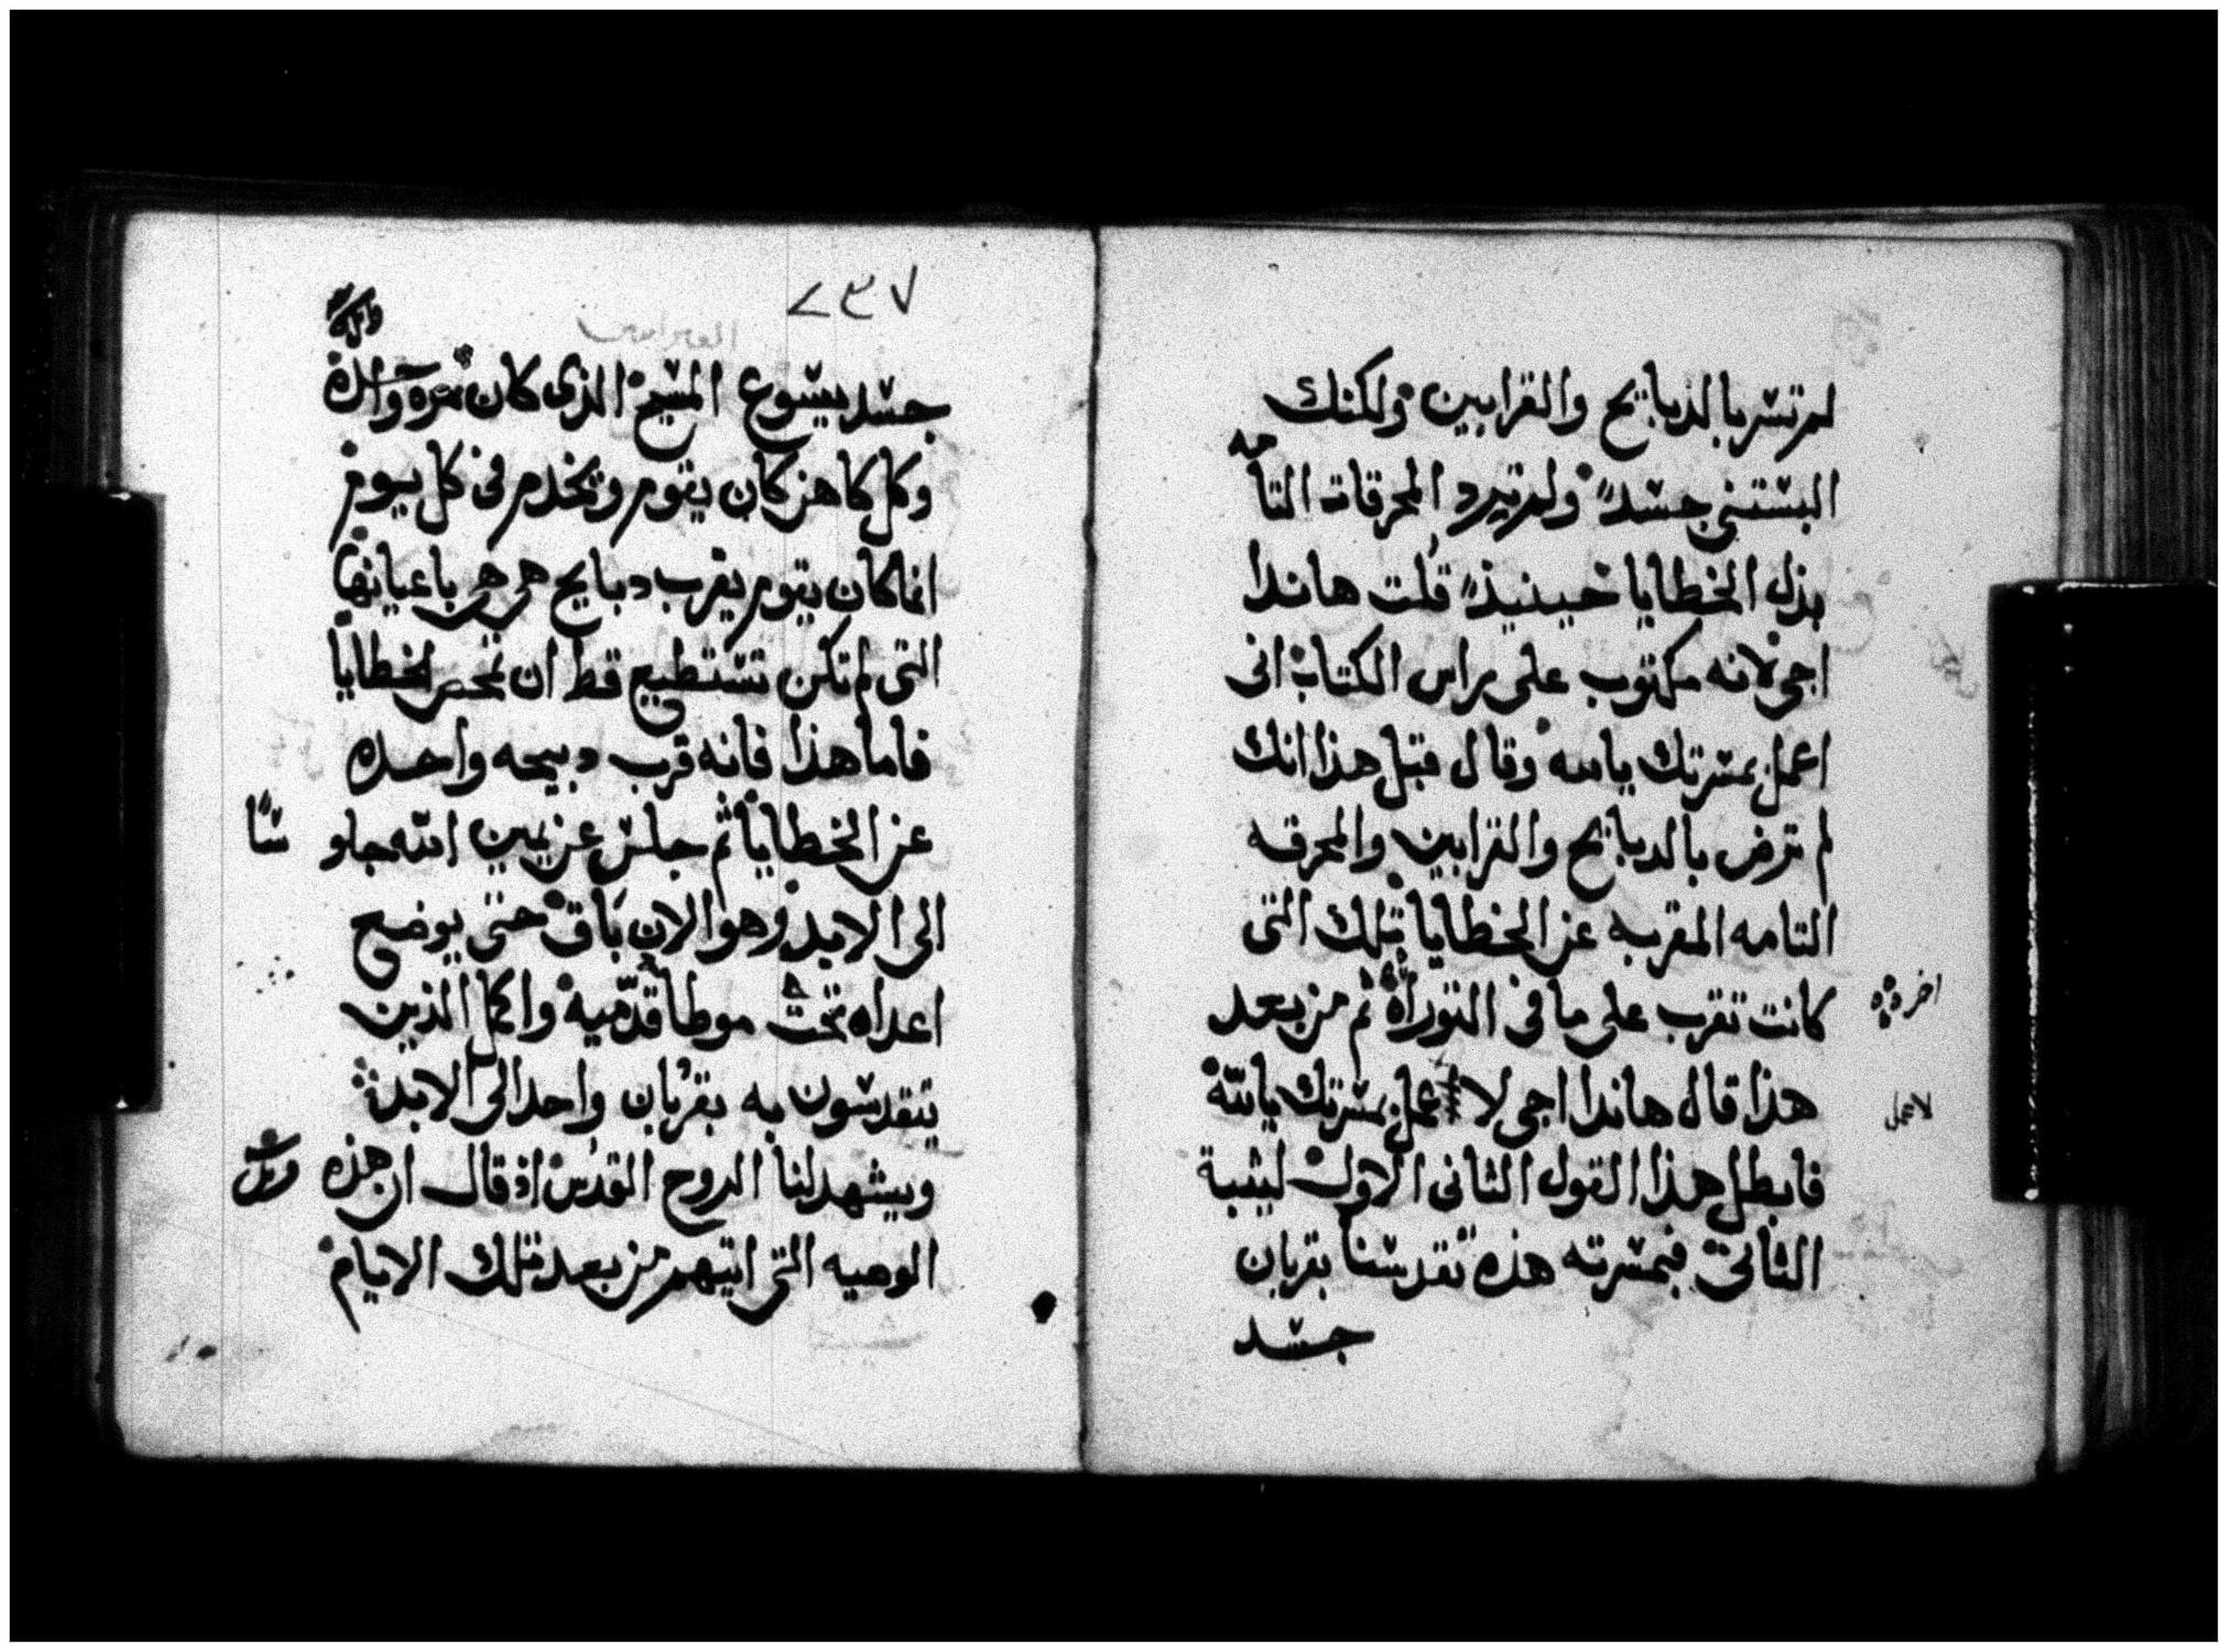 لم تسر بالذبايح والقرابين ولكنك
البستني جسداً ولم ترد المحرقات التامه
بذل الخطايا حينيذٍ قلت هاندا
اجى لانه مكتوب على راس الكتاب انى
اعمل بمسرتك يا الله وقال قبل هذا انك
لم ترض بالدبايح والقرابين والمحرقه
التامه المقربه عن الخطايا تلك التى
كانت تقرب على ما فى التوراة ثم من بعد
اخر
هذا قال هاندا اجى لا عمل بمسرتك يا الله
لاعمل
فابطل هذا القول الثانى الاول ليثبة
الثانى فبمسرته هذه تقدسنا بقربان
جسد
٢٣٧
العبرانيين
جسد يسوع المسيح الذى كان مرة واحدة
وكل كاهن كان يقوم ويخدم فى كل يوم
انما كان يقوم يقرب دبايح هى هى باعيانها
التى لم تكن تستطيع قط ان تمحص الخطايا
فاما هذا فانه قرب دبيحه واحده
عن الخطايا ثم جلس عن يمين الله جلو ساً
الى الابد وهو الان باق حتى يوضع
اعداه تحت موطا قدميه واكمل الذين
يتقدسون به بقربان واحد الى الابد
ويشهد لنا الروح القدس اذ قال ان هذه
الوصيه التى اتيتهم من بعد تلك الايام